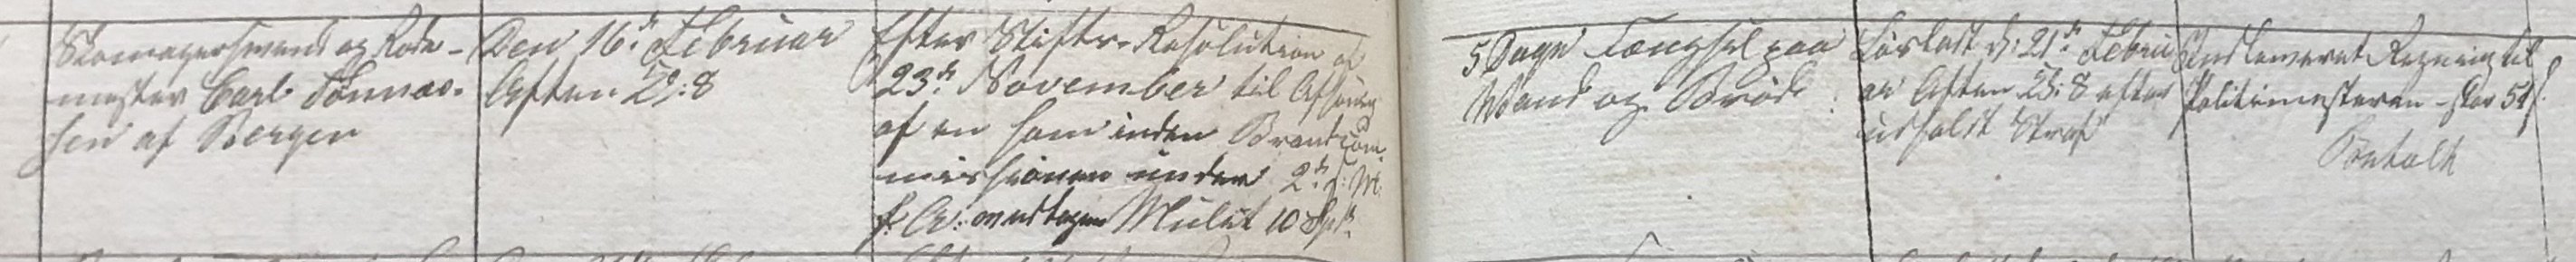 Skomagersvend og Rode-
mester Carl Tønnes-
sen af Bergen
Den 16de Februar
Aften Kl: 8
Efter Stifts-Resolution af
23de November til Afsoning
af en ham inden Brandcom-
missionen under 2den s: M:
f. A: Mulct 10 Spd
5 Dages Fængsel paa
Vand og Brød
Løsladt d: 21de Februar
Aften Kl: 8 efter
udholdt Straf
Indleveret Regning til
Politimesteren - stor
Betalt